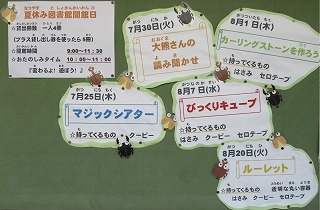 なつやす としょかんかいかんび
夏休み図書館開館日
☆貸出冊数 一人4冊
(プラス貸し出し券を使ったら 8冊)
☆開館時間 9:00～11:30
☆おたのしみタイム 10:00～11:00
『言わるよ! 遊ぼう!』
7月30日(火)
おおくま
大熊さんの
読み聞かせ
8月1日(木)
カーリングストーンを作ろう
☆持ってくるもの
はさみ セロテープ
7月25日(木)
マジックシアター
☆持ってくるもの クーピー
8月7日(水)
びっくりキューブ
☆持ってくるもの クーピー
はさみ セロテープ
8月20日(火)
ルーレット
☆持ってくるもの 透明な丸い容器
はさみ クーピー セロテープ